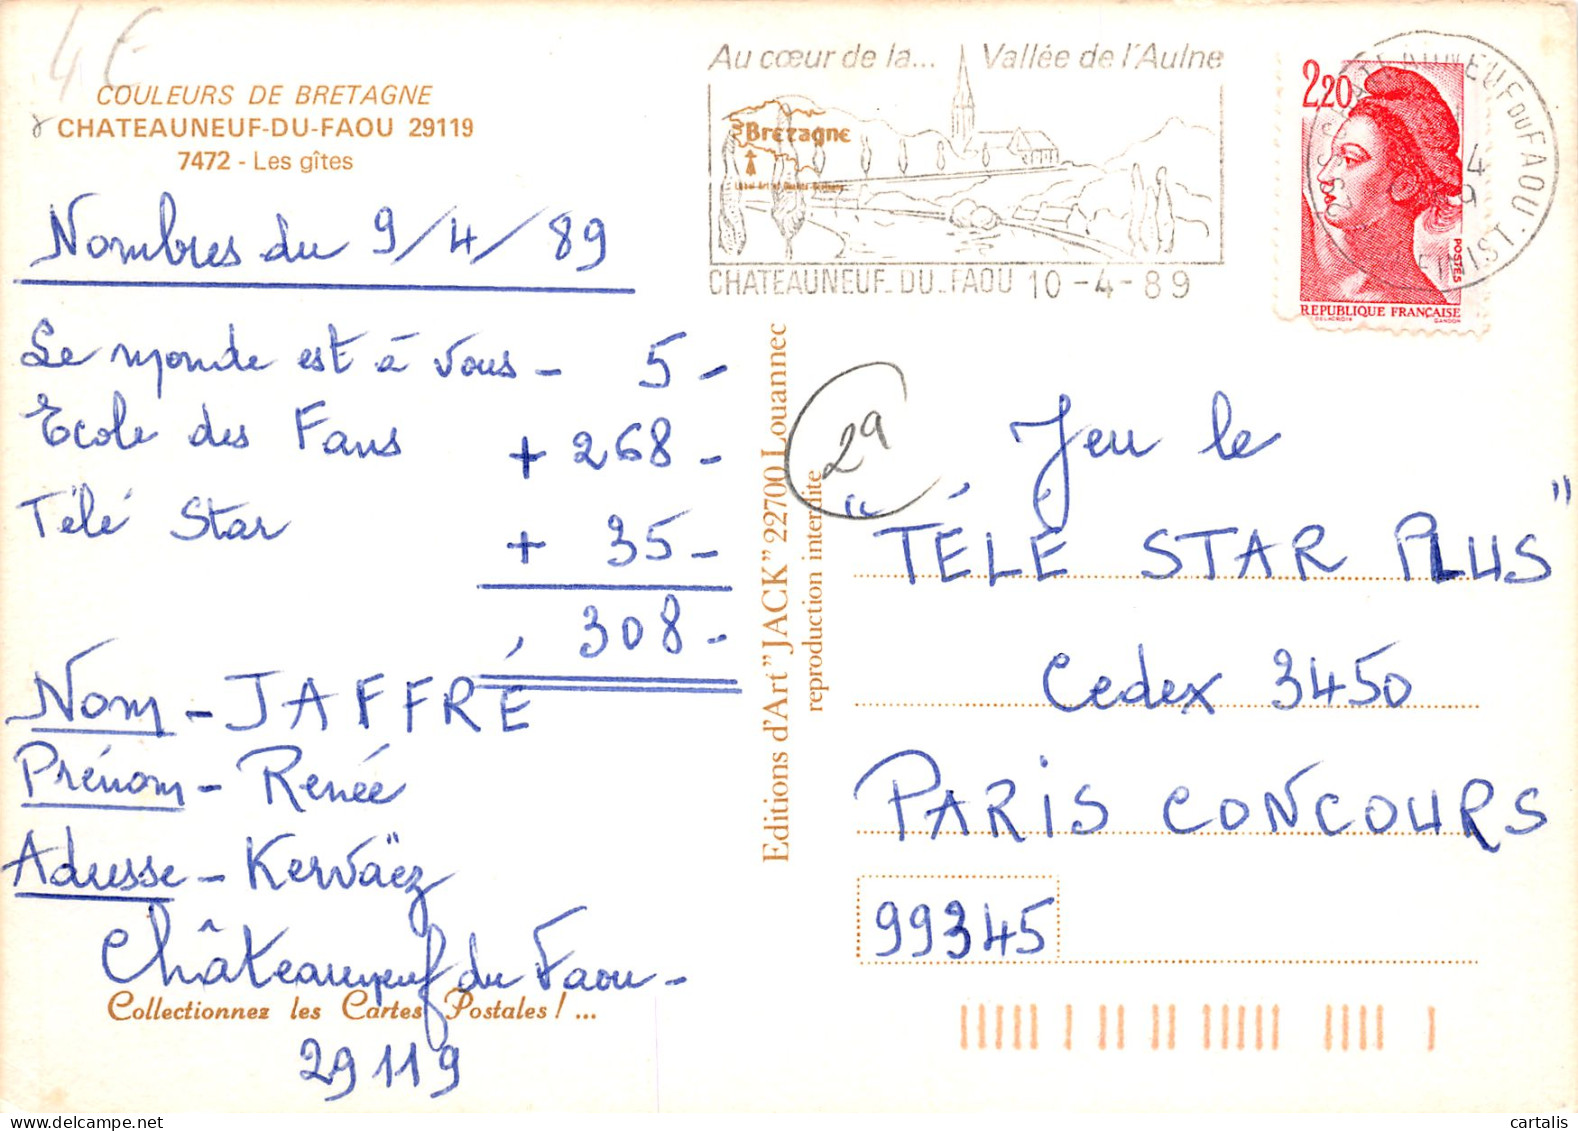 4E
COULEURS DE BRETAGNE
CHATEAUNEUF-DU-FAOU 29119
7472 - Les gîtes
Nombres du 9/4/89
Le monde est à vous - 5 -
Ecole des Fans + 268 -
Télé Star + 35 -
308 -
Nom - JAFFRÉ
Prénom - Renée
Adresse - Kerväez
Châteauneuf du Faou -
Collectionnez les Cartes Postales ! ...
29119
Editions d'Art "JACK" 22700 Louannec
reproduction interdite
Au cœur de la... Vallée de l'Aulne
Bretagne
CHATEAUNEUF-DU-FAOU 10-4-89
2,20
POSTES
REPUBLIQUE FRANÇAISE
DELACROIX GANDON
CHATEAUNEUF DU FAOU
29S
FINIST.
2a
Jeu le
"TÉLÉ STAR PLUS"
Cedex 3450
PARIS CONCOURS
99345
cartalis